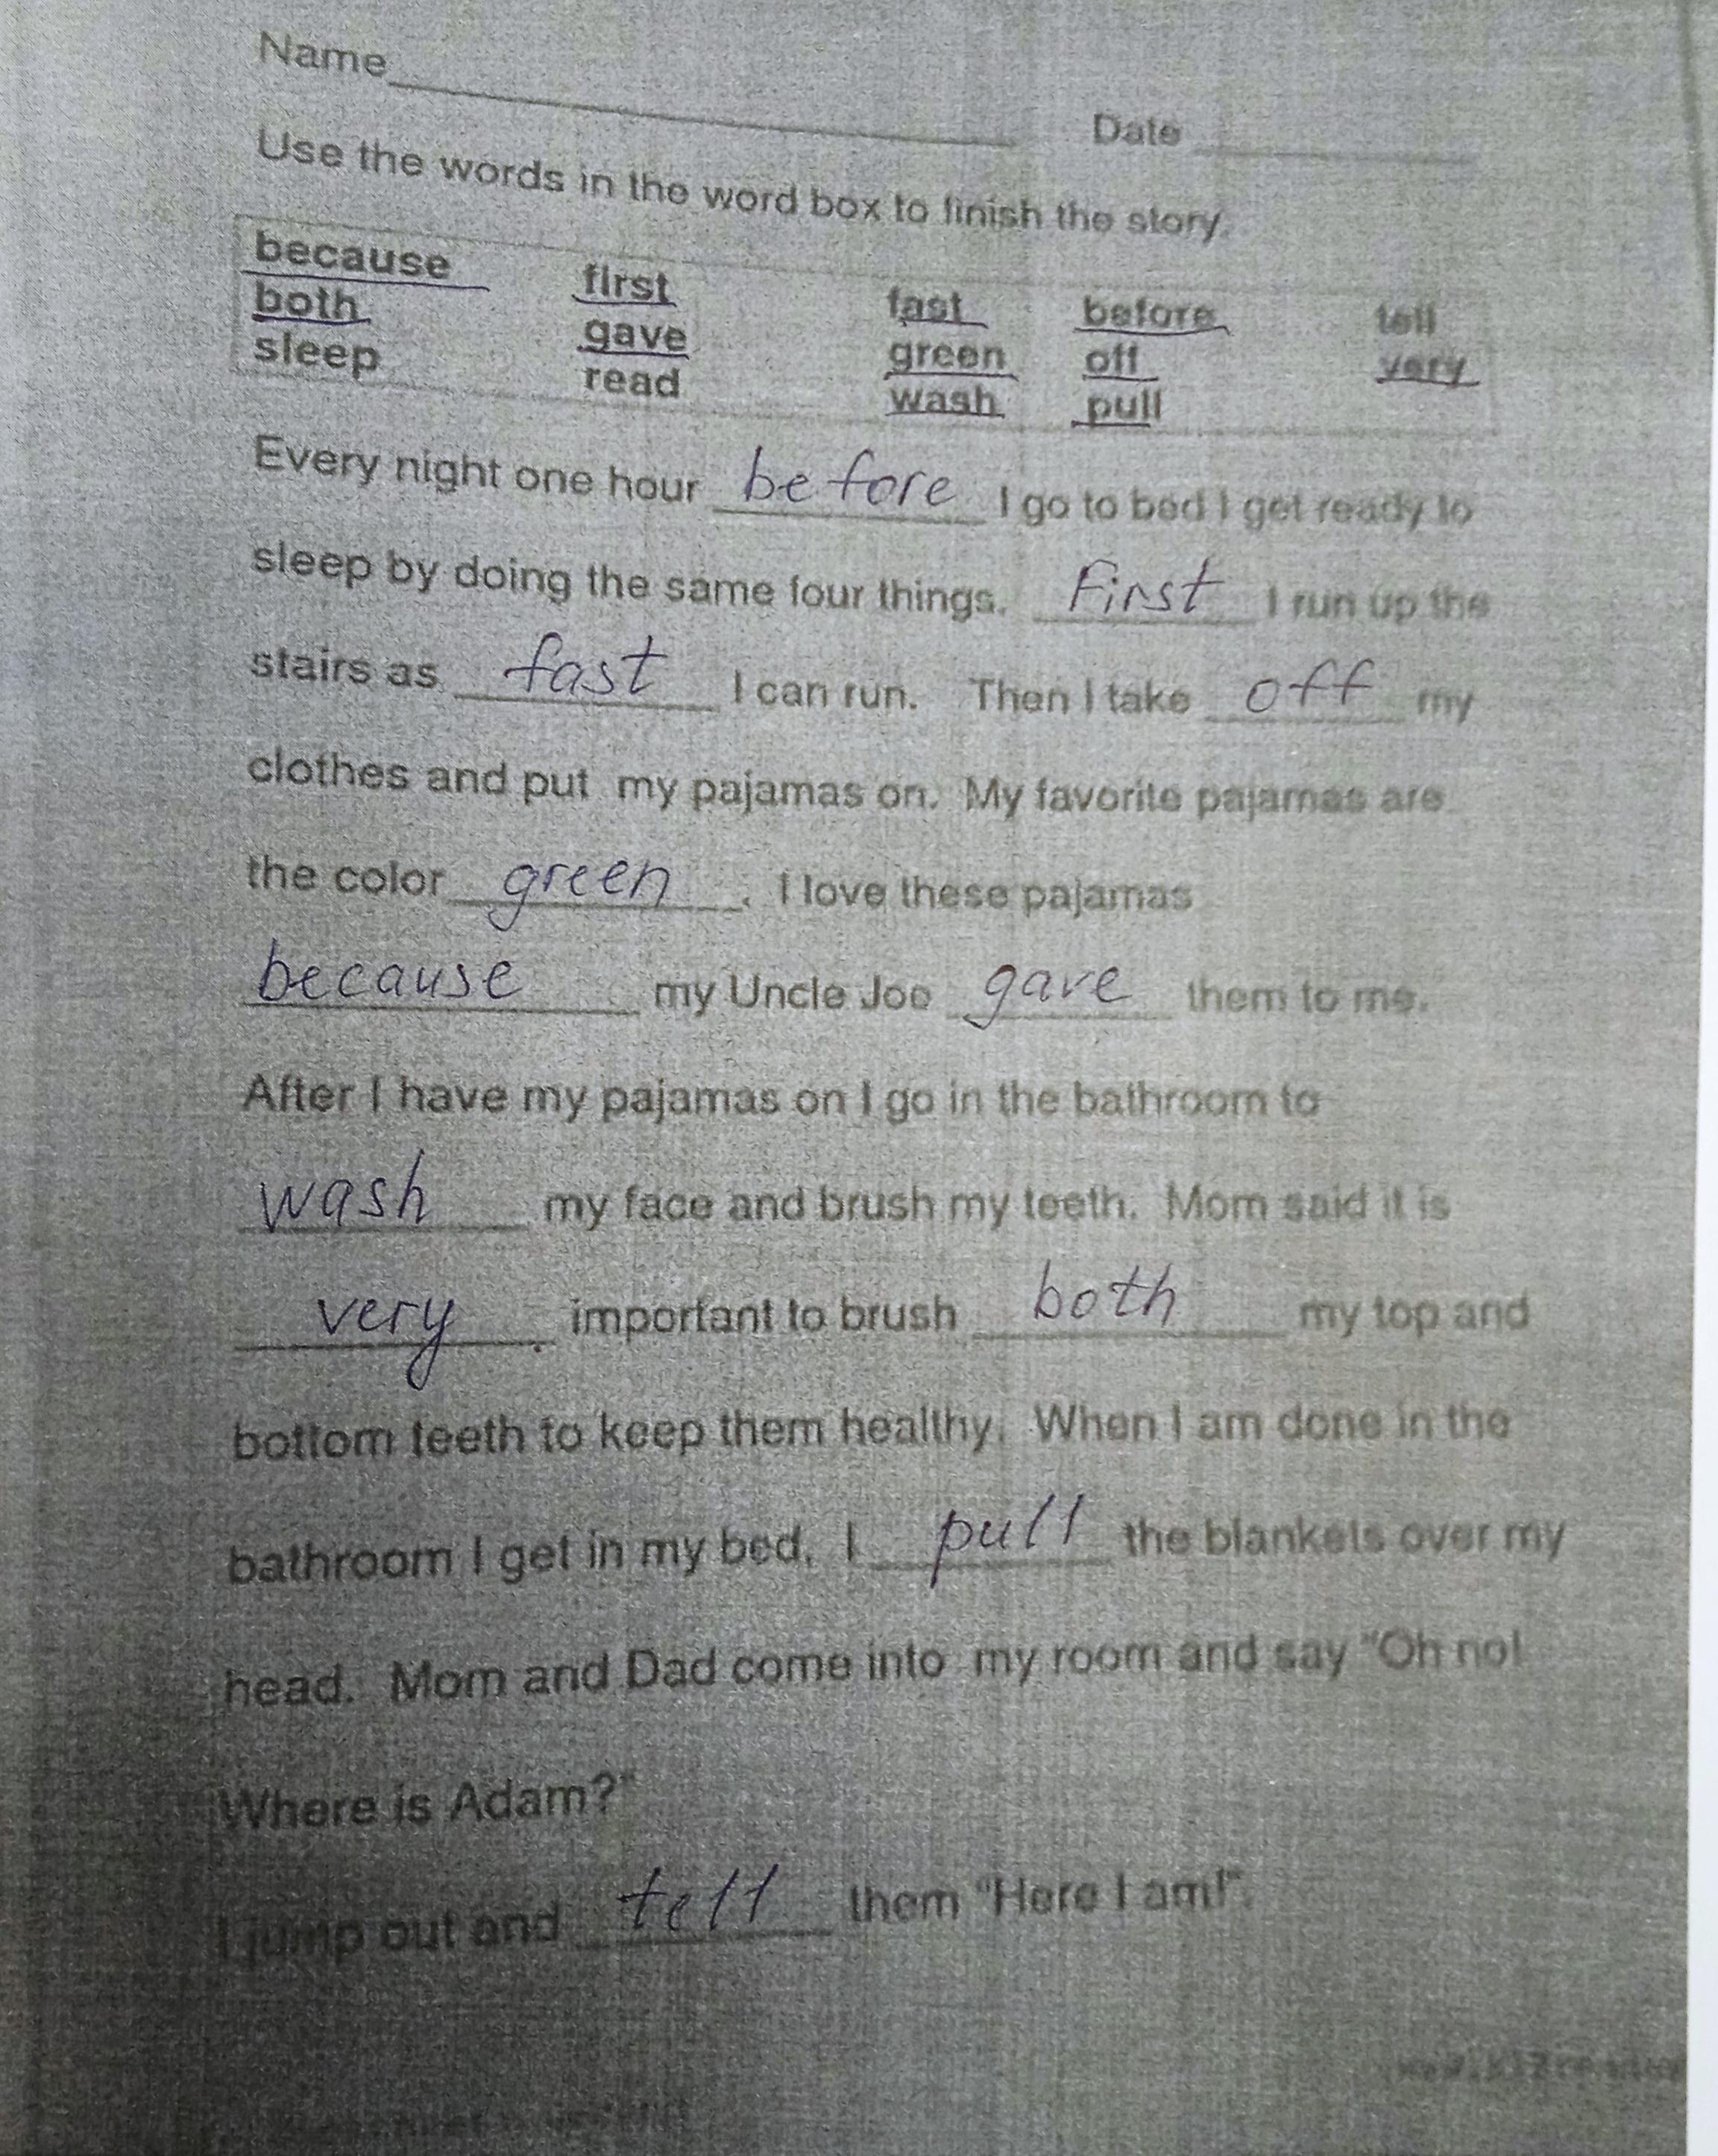 Name Date
Use the words in the word box to finish the story.
because first fast before tell
both gave green off very
sleep read wash pull
Every night one hour before I go to bed I get ready to
sleep by doing the same four things. First I run up the
stairs as fast I can run. Then I take off my
clothes and put my pajamas on. My favorite pajamas are
the color green. I love these pajamas
because my Uncle Joe gave them to me.
After I have my pajamas on I go in the bathroom to
wash my face and brush my teeth. Mom said it is
very important to brush both my top and
bottom teeth to keep them healthy. When I am done in the
bathroom I get in my bed. I pull the blankets over my
head. Mom and Dad come into my room and say "Oh no!
Where is Adam?"
I jump out and tell them "Here I am!".